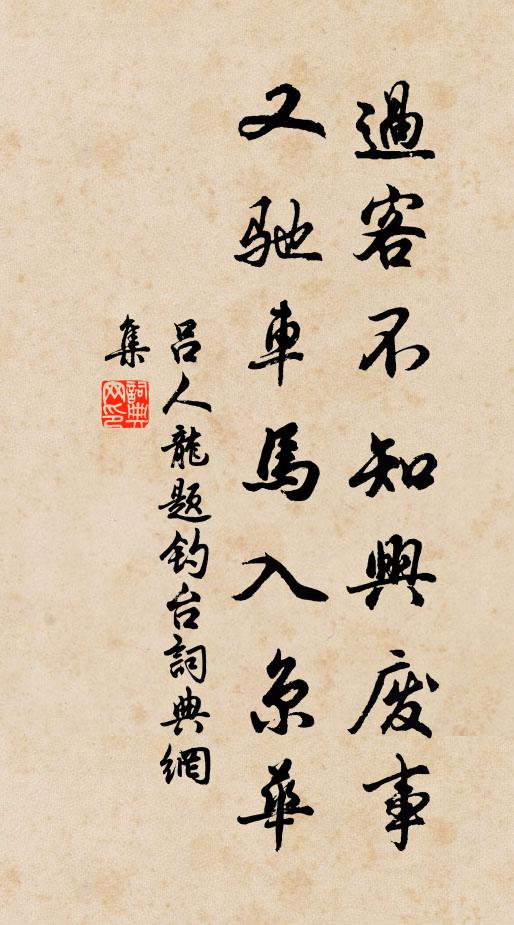 過客不知興废事
又驰車馬入京華
吕人龍题钓台詞典網
集
詞典网印